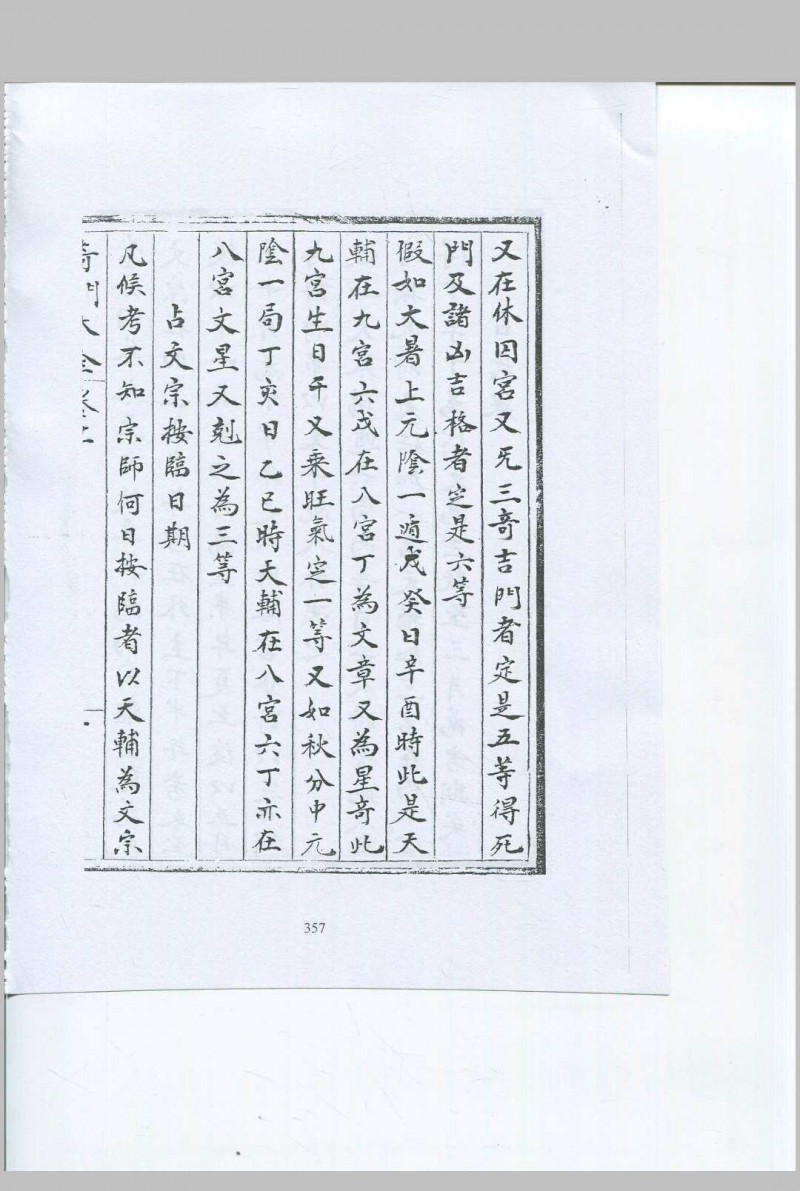 又在休囚宮又旡三竒吉門者定是五等得死
門及諸凶吉格者定是六等
假如大暑上元陰一遁戊癸日辛酉時此是天
輔在九宮六戊在八宮丁為文章又為星竒此
九宮生日干又乘旺氣定一等又如秋分中元
陰一局丁亥日乙巳時天輔在八宮六丁亦在
八宮文星又剋之為三等
占文宗按臨日期
凡候考不知宗師何日按臨者以天輔為文宗
竒門大全卷之
357